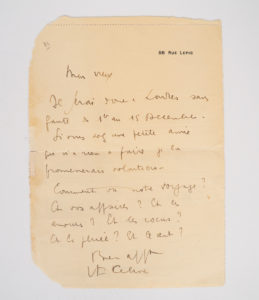 98 RUE LEPIC
Mon vieux
Je irai vous à Londres sans
faute du 1er au 15 Décembre.
Si vous une petite amie
qui n'a rien à faire je la
promenerais volontiers.
Comment va votre voyage ?
Et vos affaires ? Et les
amours ? Et les cocus ?
Et la ? Et l'art ?
Bien afft
LF Celine